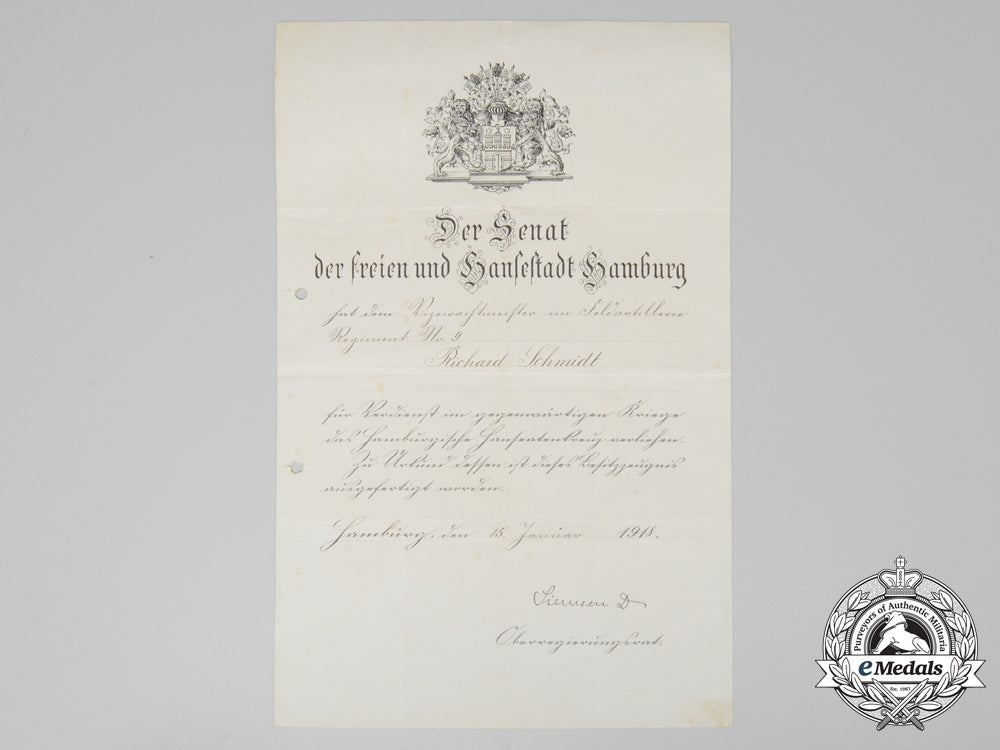 Der Senat
der freien und Hansestadt Hamburg
hat dem Vizewachtmeister im Feldartillerie-
Regiment Nr. 9
Richard Schmidt
für Verdienst im gegenwärtigen Kriege
das Hamburgische Hanseatenkreuz verliehen.
Zu Urkund dessen ist dieses Besitzzeugnis
ausgefertigt worden.
Hamburg, den 15. Januar 1918.
Siemsen D
Oberregierungsrat.
Purveyors of Authentic Militaria
eMedals
Est. 1981